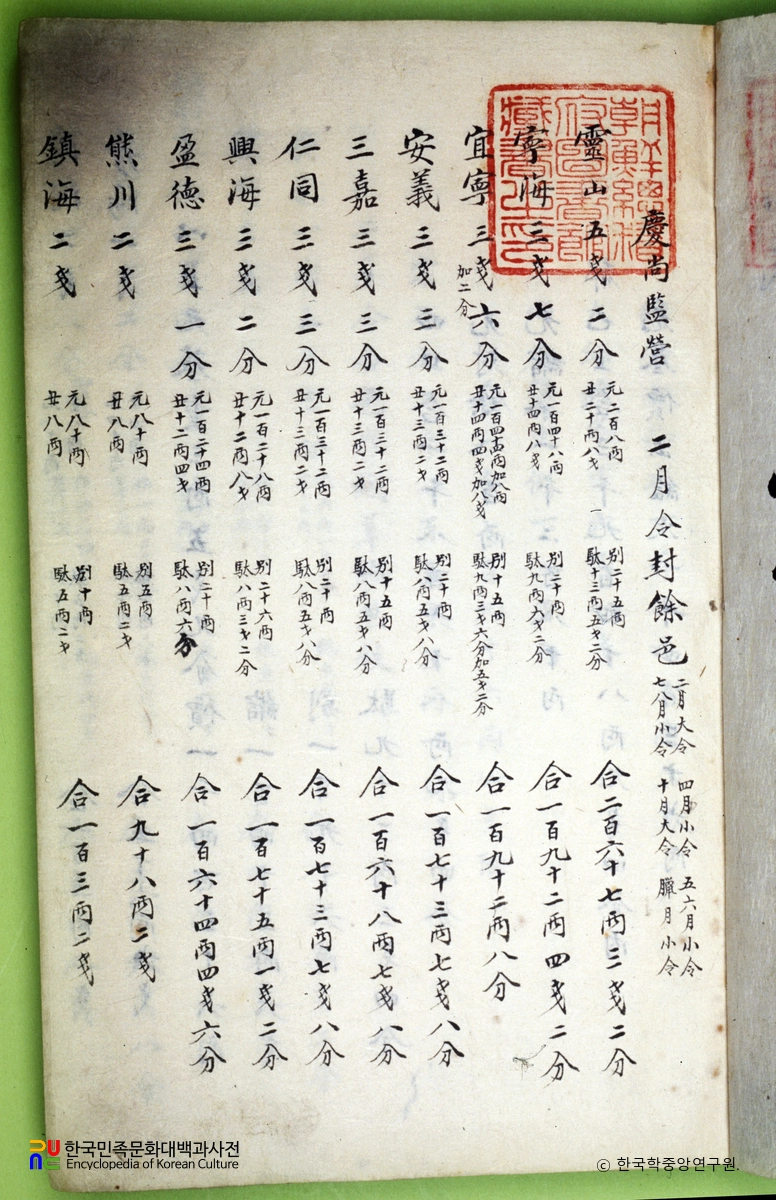 朝鮮總督府圖書館藏書之印
慶尚監營 二月令封餘邑
二月大令 四月小令 五六月小令
七八月小令 十月大令 臘月小令
靈山 五戔二分 元二百八兩 丑二十兩八戔 別二十五兩 駄十三兩五戔二分 合二百六十七兩三戔二分
寧海 三戔七分 元一百四十八兩 丑十四兩八戔 別二十兩 駄九兩六戔二分 合一百九十二兩四戔二分
宜寧 三戔六分 加二分 元一百四十四兩加八兩 丑十四兩四戔加八戔 別十五兩 駄九兩三戔六分加五戔二分 合一百九十二兩八分
安義 三戔三分 元一百三十二兩 丑十三兩二戔 別二十兩 駄八兩五戔八分 合一百七十三兩七戔八分
三嘉 三戔三分 元一百三十二兩 丑十三兩二戔 別十五兩 駄八兩五戔八分 合一百六十八兩七戔八分
仁同 三戔三分 元一百三十二兩 丑十三兩二戔 別二十兩 駄八兩五戔八分 合一百七十三兩七戔八分
興海 三戔二分 元一百二十八兩 丑十二兩八戔 別二十六兩 駄八兩三戔二分 合一百七十五兩一戔二分
盈德 三戔一分 元一百二十四兩 丑十二兩四戔 別二十兩 駄八兩六分 合一百六十四兩四戔六分
熊川 二戔 元八十兩 丑八兩 別五兩 駄五兩二戔 合九十八兩二戔
鎮海 二戔 元八十兩 丑八兩 別十兩 駄五兩二戔 合一百三兩二戔
한국민족문화대백과사전
Encyclopedia of Korean Culture
© 한국학중앙연구원.